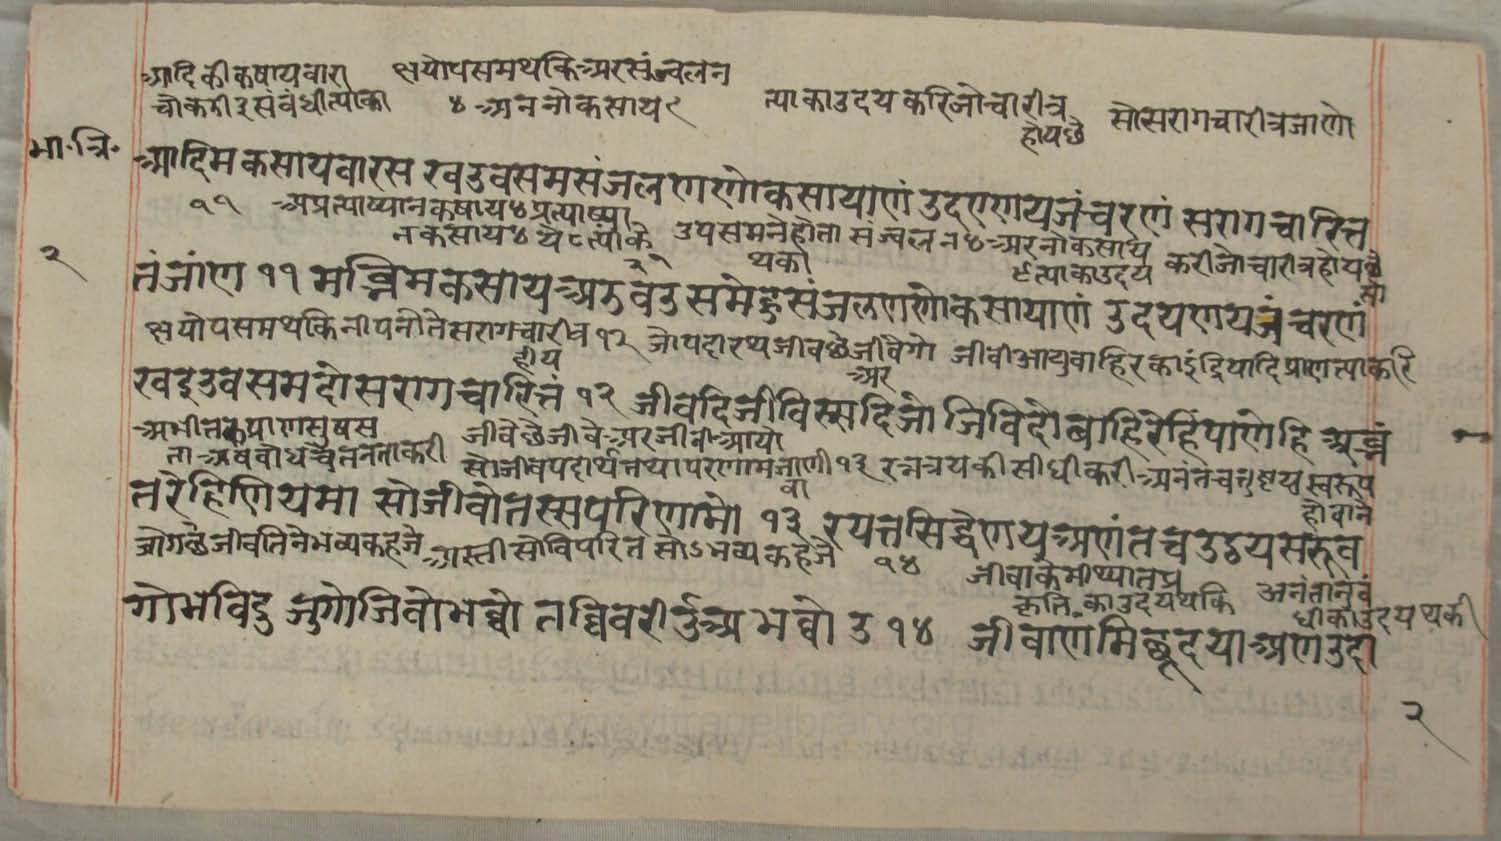 आदिकीकषायवारा क्षयोपसमथकिअरसंज्वलन
चोकडी३संबंधीत्याका ४ अननोकसाय९ त्याकाउदयकरिजोचारीत्र होयछै सोसरागचारीत्रजाणो
भा.त्रि.
आदिमकसायवारस खउवसमसंजलणणोकसायाणं उदएणयजंचरणं सरागचारित्त
११ अप्रत्याष्यानकषाय४प्रत्याष्या
नकसाय४ ये८त्यांकै उपसमनेहोता संज्वलन४अरनोकसाय
थका ९त्याकाउदय करीजोचारीत्रहोयछै सो
२
तंजांण ११ मज्झिमकसायअडउवसमेहुसंजलणणोकसायाणं उदयणयजंचरणं
क्षयोपसमथकिनीपनोतेसरागचारीत्र १२ जोपदारथजीवछैजीवैगो जीवोआयुवाहिरकाइंद्रियादिप्राणत्याकरि
होय अर
खइउवसमदोसरागचारित्तं १२ जीवदिजीविस्सदिजो जिविदोबाहिरेहिंपाणेहि अब्भं
अभीत्तरुप्राणसुषस जीवेछैजीवेअरजीवोआयो
ताअवबोधचैतनताकरी सोजीवपदार्थत्तथापरणामजाणी१३ रत्नत्रयकीसीधीकरी अनंतचतुष्टयस्वरूप
वा होवाने
तरेहिणियमा सोजीवोतस्सपरिणामो १३ रयत्तसिद्धेणयुअणंतचउठयसरुव
जोगछैजीवतिनेभव्यकहजे अस्तीसोविपरितसोऽभव्यकहेजे १४ जीवाकेमीथ्यातप्र
कृति.काउदयथकि अनंतानुबं
धीकाउदयथकी
गोभविदु जुगोजिवोभव्वो तव्विवरीर्उअभव्वो उ १४ जीवाणंमिछूदयाअणउदा
२